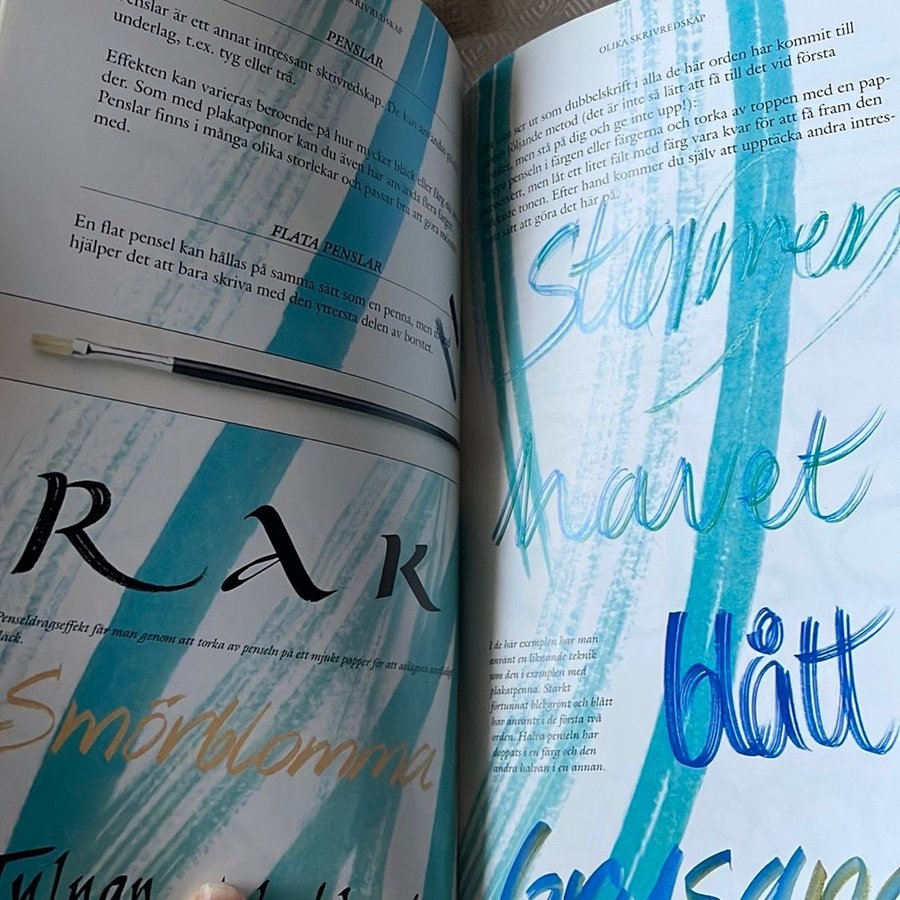 SKRIVREDSKAP
PENSLAR
Penslar är ett annat intressant skrivredskap. De kan
underlag, t.ex. tyg eller trä.
Effekten kan varieras beroende på hur mycket bläck eller färg du
der. Som med plakatpennor kan du även här använda flera färger.
Penslar finns i många olika storlekar och passar bra att göra
med.
FLATA PENSLAR
En flat pensel kan hållas på samma sätt som en penna, men
hjälper det att bara skriva med den yttersta delen av borstet.
R A K
Penseldragseffekt får man genom att torka av penseln på ett mjukt papper för att avlägsna
Smörblomma
OLIKA SKRIVREDSKAP
som ser ut som dubbelskrift i alla de här orden har kommit till
följande metod (det är inte så lätt att få till det vid första
men stå på dig och ge inte upp!):
penseln i färgen eller färgerna och torka av toppen med en pap-
men låt ett litet fält med färg vara kvar för att få fram den
tonen. Efter hand kommer du själv att upptäcka andra intres-
sätt att göra det här på.
Stormen
havet
blått
I de här exemplen har man
använt en liknande teknik
som den i exemplen med
plakatpenna. Starkt
förtunnat blekgrönt och blått
har använts i de första två
orden. Halva penseln har
doppats i en färg och den
andra halvan i en annan.